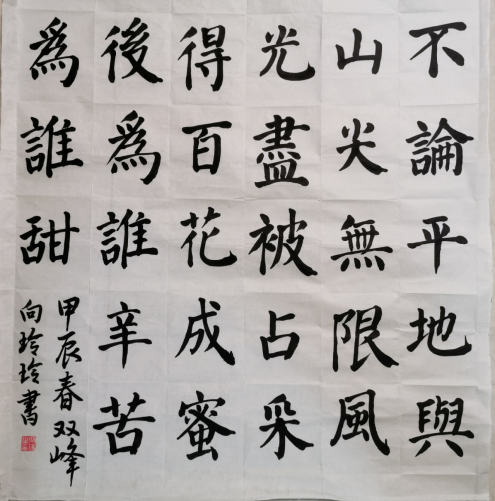 不論平地與
山尖無限風
光盡被占采
得百花成蜜
後爲誰辛苦
爲誰甜
甲辰春双峰
向玲玲書